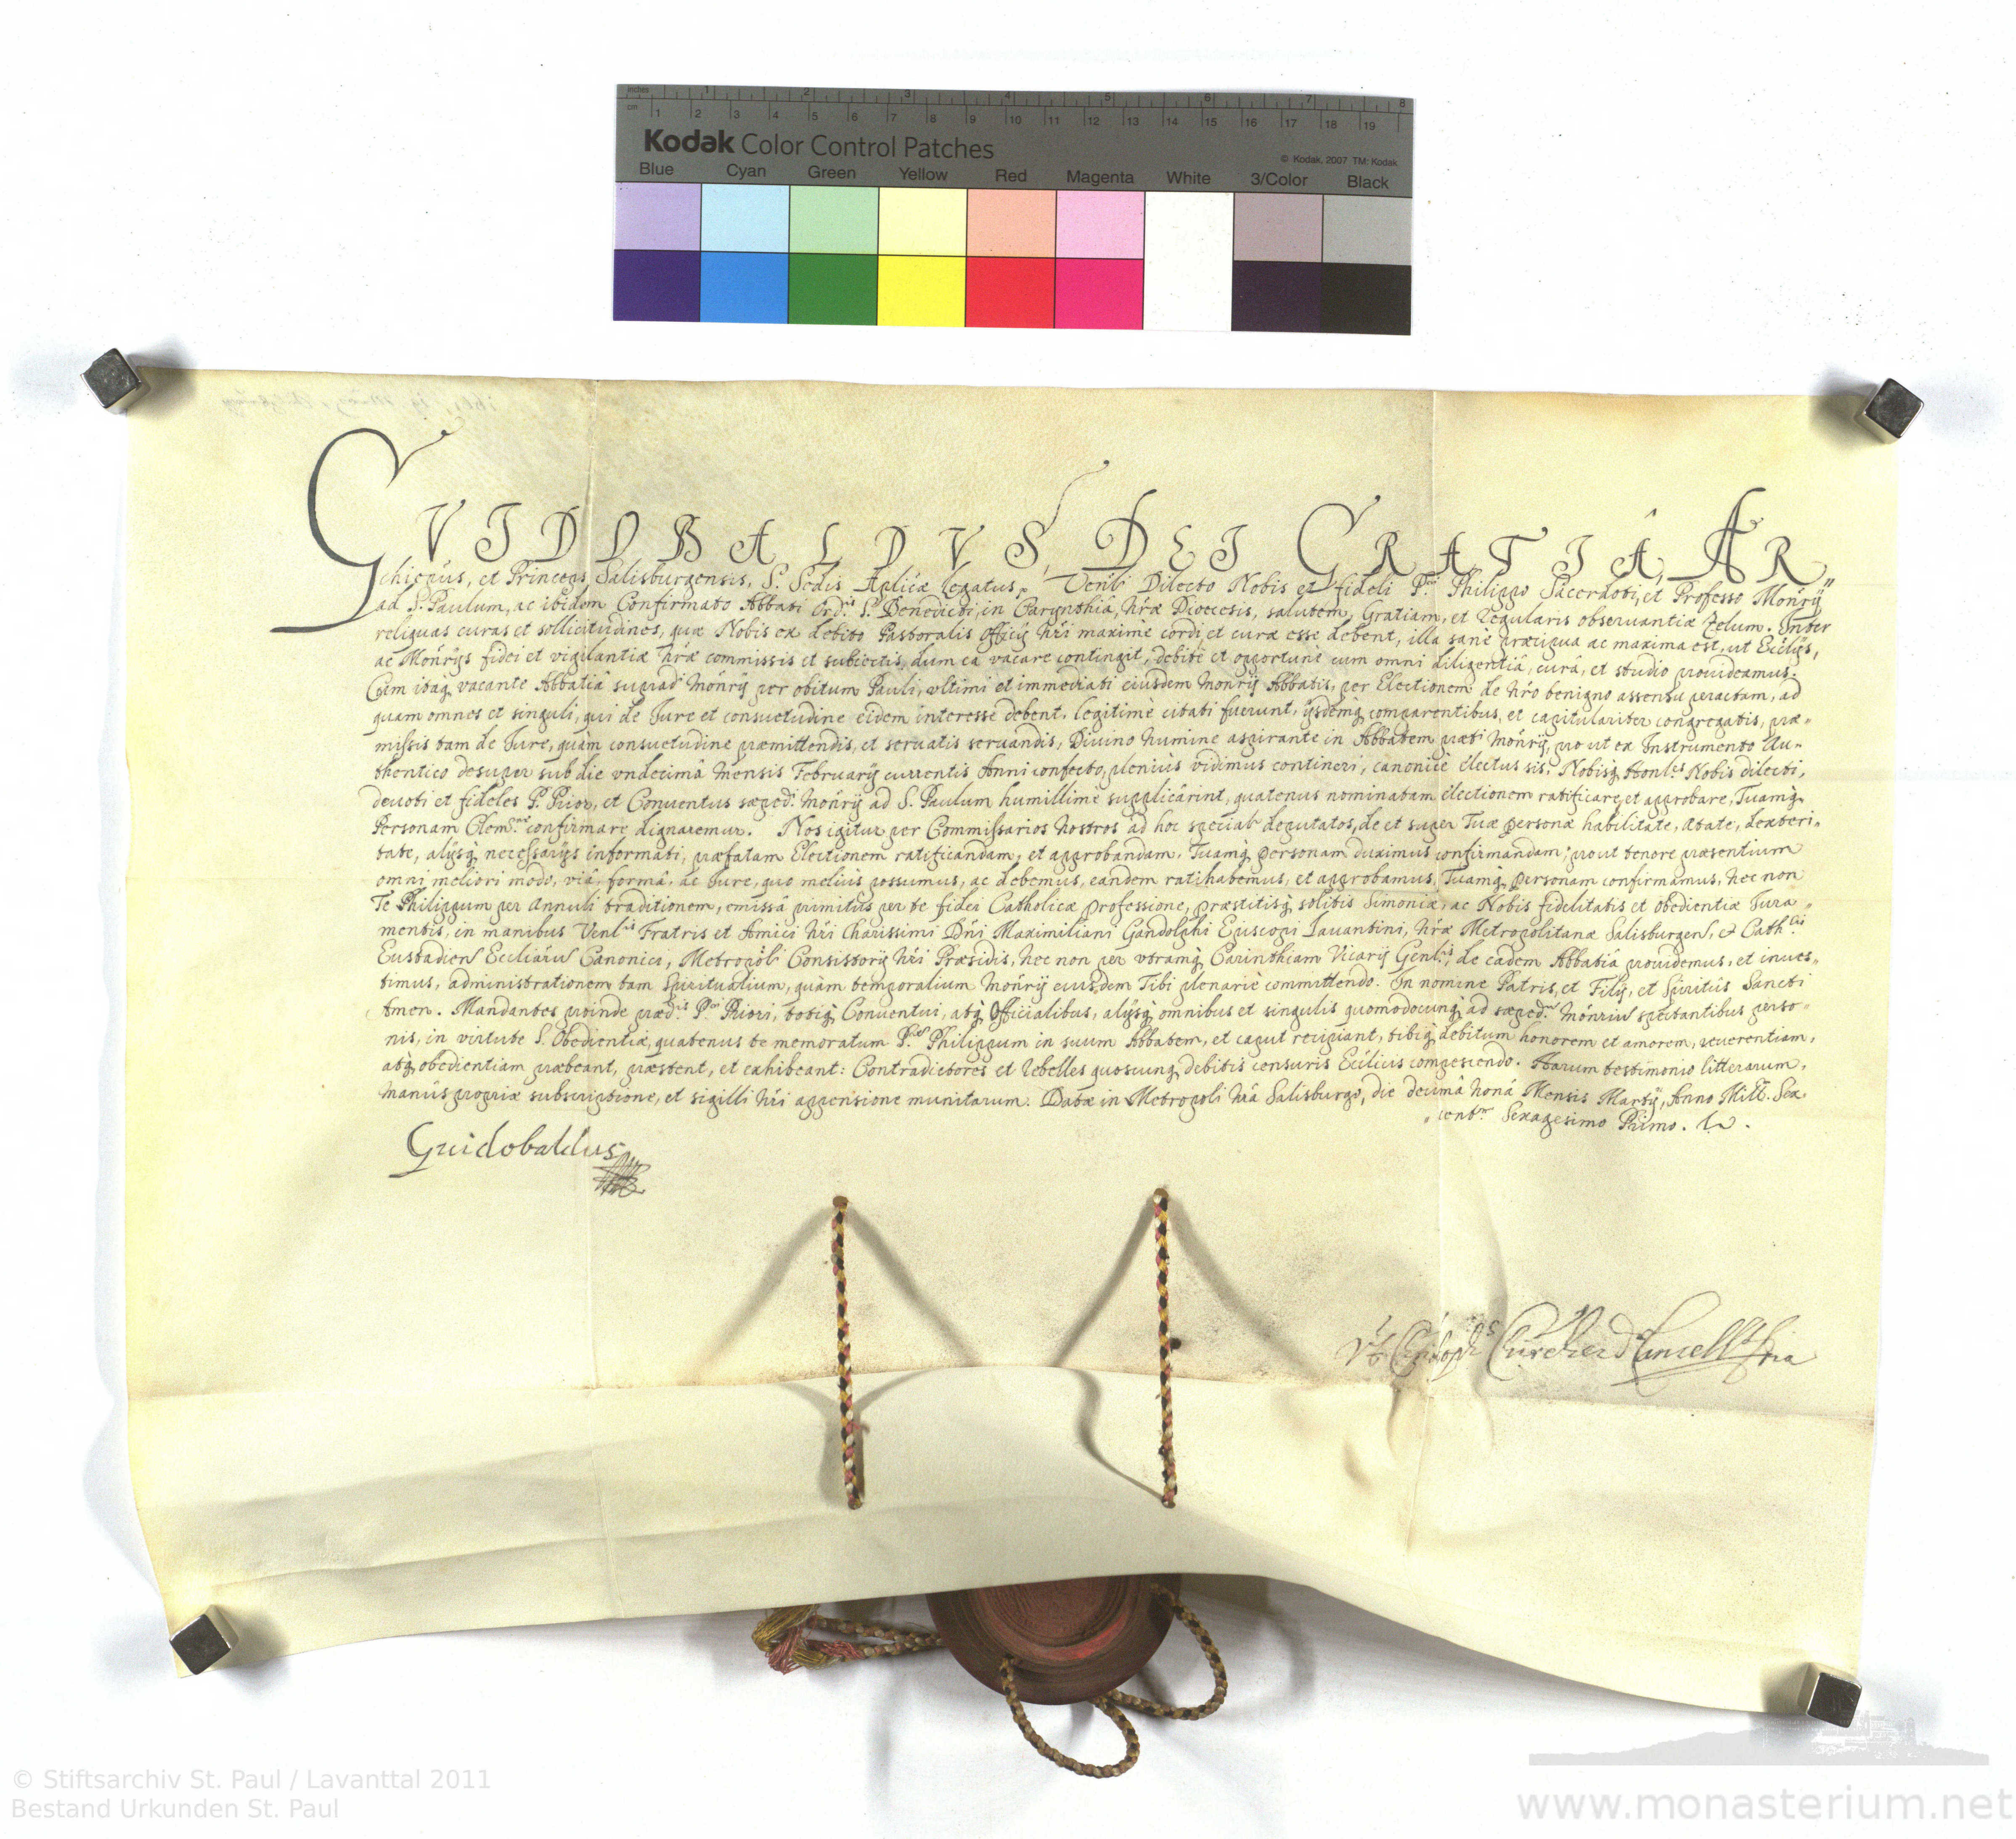 inches 1 2 3 4 5 6 7 8
cm 1 2 3 4 5 6 7 8 9 10 11 12 13 14 15 16 17 18 19
Kodak Color Control Patches
© Kodak, 2007 TM: Kodak
Blue Cyan Green Yellow Red Magenta White 3/Color Black
GVIDOBALDVS, DEI GRATIÂ, AR
chiẽpus, et Princeps Salisburgensis, S. Sedis Aplicæ Legatus, Venli Dilecto Nobis et fideli P. Philippo Sacerdoti, et Professo Mönrÿ
ad S. Paulum, ac ibidem Confirmato Abbati Ord.is S. Benedicti, in Carynthia, nræ Diœcesis, salutem, Gratiam, et Regularis observantiæ Zelum. Inter
reliquas curas et sollicitudines, quæ Nobis ex debito Pastoralis officÿ nri maximè cordi et curæ esse debent, illa sanè præcipua ac maxima est, ut Ecclÿs,
ac Monrÿs fidei et vigilantiæ nræ commissis et subiectis, dum ea vacare contingit, debitè et opportunè cum omni diligentiâ, curâ, et studio prouideamus.
Cum itaq vacante Abbatiâ suprad. Monrÿ per obitum Pauli, vltimi et immediati eiusdem Monrÿ Abbatis, per Electionem de nro benigno assensu peractam, ad
quam omnes et singuli, qui de Jure et consuetudine eidem interesse debent, legitimè citati fuerunt, ÿsdemq comparentibus, et capitulariter congregatis, præ=
missis tam de Jure, quàm consuetudine præmittendis, et seruatis seruandis, Diuino Numine aspirante in Abbatem præti Monrÿ, prout ex Instrumento Au=
thentico desuper sub die vndecimâ Mensis Februarÿ currentis Anni confecto, plenius vidimus contineri, canonicè electus sis: Nobisq Honl.s Nobis dilecti,
deuoti et fideles P. Prior, et Conuentus sæped. Monrÿ ad S. Paulum humillimè supplicârint, quatenus nominatam electionem ratificare, et approbare, Tuamq
Personam Clem.mè confirmare dignaremur. Nos igitur per Commissarios Nostros ad hoc special. deputatos, de et super Tuæ personæ habilitate, ætate, dexteri=
tate, alÿsq necessarÿs informati, præfatam Electionem ratificandam, et approbandam, Tuamq personam duximus confirmandam; prout tenore præsentium
omni meliori modo, viâ, formâ, ac Jure, quo meliùs possumus, ac debemus, eandem ratihabemus, et approbamus, Tuamq personam confirmamus, nec non
Te Philippum per Annuli traditionem, emissâ primitùs per te fidei Catholicæ professione, præstitisq solitis Simoniæ, ac Nobis fidelitatis et obedientiæ Jura=
mentis, in manibus Venl.is Fratris et Amici nri charissimi Dni Maximiliani Gandolphi Episcopi Lauantini, nræ Metropolitanæ Salisburgen, et Cath.lis
Eustadien Ecclia͠ru Canonici, Metropoli Consistorÿ nri Præsidis, nec non per vtramq Carinthiam Vicarÿ Genl.is, de eadem Abbatia prouidemus, et inues=
timus, administrationem tam spiritualium, quàm temporalium Monrÿ eiusdem Tibi plenariè committendo. In nomine Patris, et Filÿ, et Spiritûs Sancti
Amen. Mandantes proinde præd.is P. Priori, totiq Conuentui, atq Officialibus, alÿsq omnibus et singulis quomodocunq ad sæped. Monriu spectantibus perso=
nis, in virtute S. Obedientiæ, quatenus te memoratum P. Philippum in suum Abbatem, et caput recipiant, tibiq debitum honorem et amorem, reuerentiam,
atq obedientiam præbeant, præstent, et exhibeant: Contradictores et rebelles quoscunq debitis censuris Eccliicis compescendo. Harum testimonio litterarum,
manus propriæ subscriptione, et sigilli nri appensione munitarum. Datæ in Metropoli nrâ Salisburgo, die decimâ nonâ Mensis Martÿ, Anno Mill. Sex=
cent.mo Sexagesimo Primo.
Guidobaldus
© Stiftsarchiv St. Paul / Lavanttal 2011
Bestand Urkunden St. Paul
www.monasterium.net